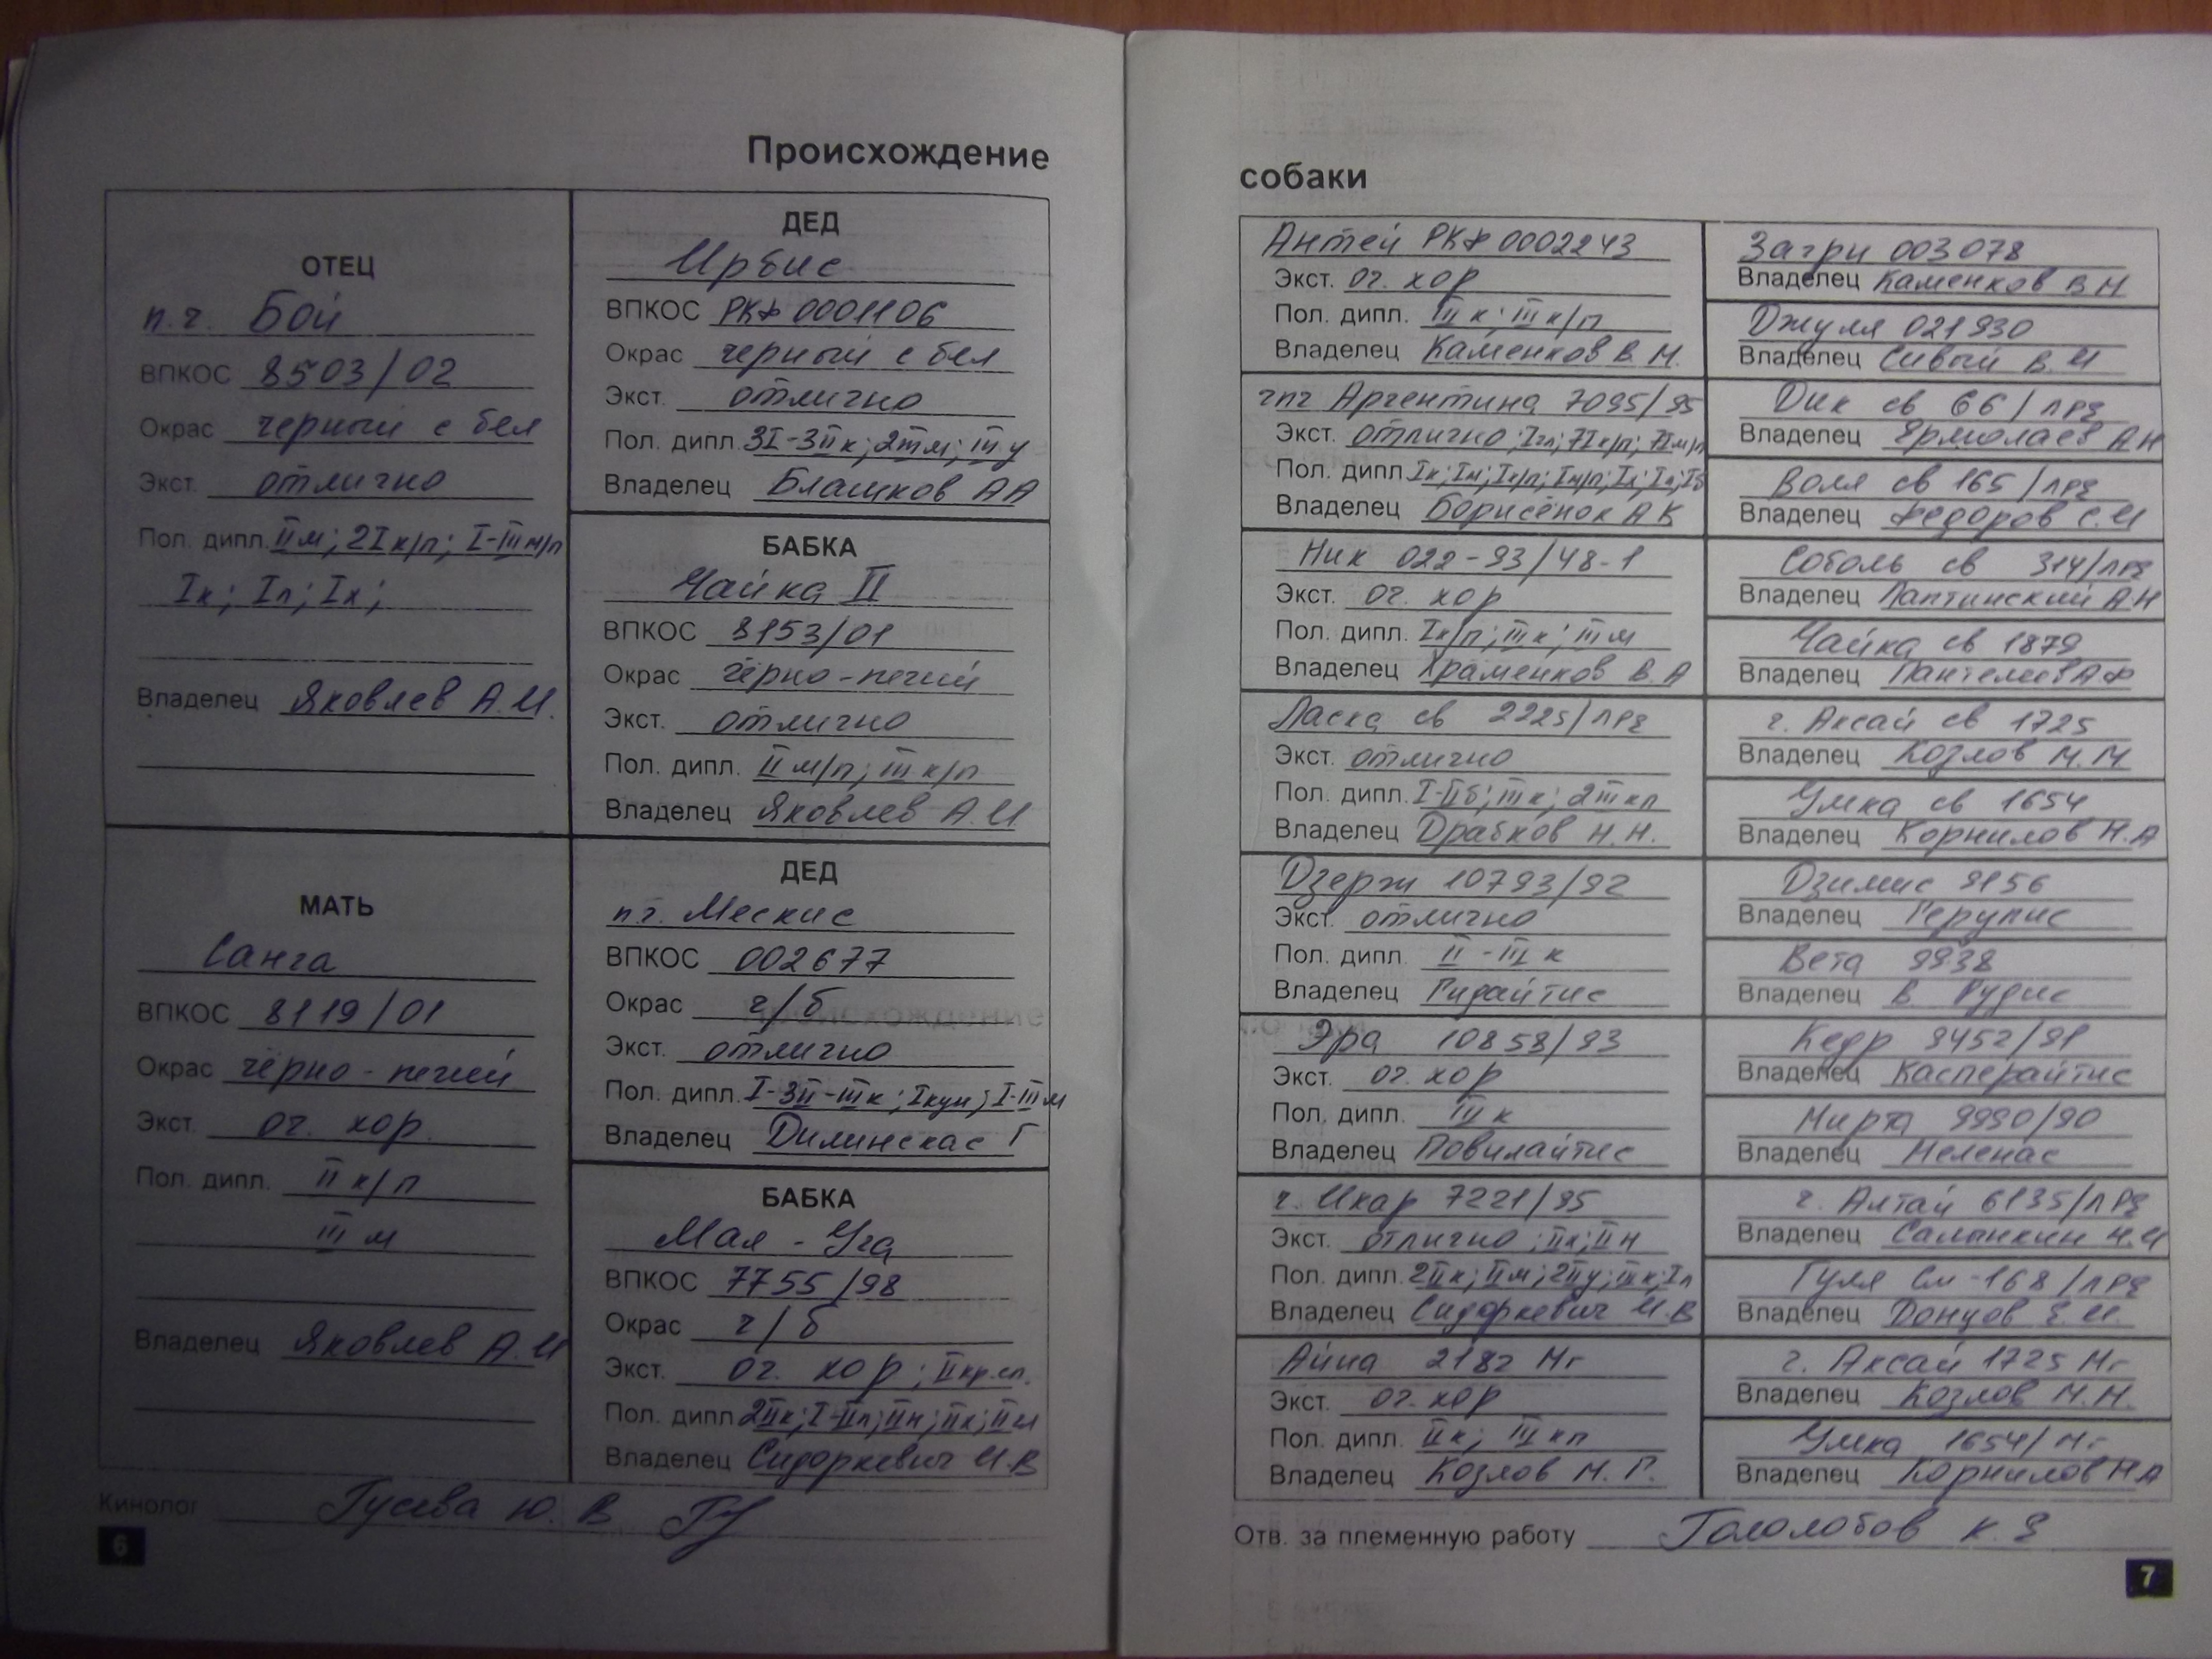 Происхождение
ОТЕЦ
п.ч. Бой
ВПКОС 8503/02
Окрас черный с бел
Экст. отлично
Пол. дипл. IIм; 2Iк/п; I-IIIм/п
Iк; Iл; Iк;
Владелец Яковлев А.И.
МАТЬ
Санга
ВПКОС 8119/01
Окрас чёрно-пегий
Экст. оч. хор.
Пол. дипл. II к/п
III м
Владелец Яковлев А.И
ДЕД
Ирбис
ВПКОС РКФ 0001106
Окрас черный с бел
Экст. отлично
Пол. дипл. 3I-3IIк; 2IIIм; III у
Владелец Блашков А А
БАБКА
Чайка II
ВПКОС 8153/01
Окрас чёрно-пегий
Экст. отлично
Пол. дипл. II м/п; III к/п
Владелец Яковлев А.И
ДЕД
п.ч. Мескис
ВПКОС 002677
Окрас ч/б
Экст. отлично
Пол. дипл. I-3II-IIIк; Iкун; I-IIIм
Владелец Дилинскас Г
БАБКА
Мая - Уга
ВПКОС 7755/98
Окрас ч/б
Экст. оч. хор; IIкр.сп.
Пол. дипл. 2IIк; I-IIл; IIн; IIк; IIм
Владелец Сидоркевич И.В
Кинолог Гусева Ю. В
6
собаки
Антей РКФ 0002243
Экст. оч. хор
Пол. дипл. II к; III к/п
Владелец Каменков В. Н.
чпч Аргентина 7095/95
Экст. отлично; Iгл; 7Iк/п; 7Iм/п
Пол. дипл. Iк; Iм; Iк/п; Iм/п;
Владелец Борисёнок А К
Ник 022-93/48-1
Экст. оч. хор
Пол. дипл. Iк/п; IIIк; III м
Владелец Храменков В. А
Ласка св 2225/лрз
Экст. отлично
Пол. дипл. I-IIб; IIIк; 2IIIкп
Владелец Драбков Н. Н.
Дзерж 10793/92
Экст. отлично
Пол. дипл. II - III к
Владелец Гидайтис
Эра 10858/93
Экст. оч. хор
Пол. дипл. III к
Владелец Повилайтис
ч. Икар 7221/95
Экст. отлично; IIк; IIн
Пол. дипл. 2IIк; IIм; 2IIу; IIIк; Iл
Владелец Сидоркевич И.В
Айна 2182 Мг
Экст. оч. хор
Пол. дипл. IIк; III кп
Владелец Козлов М. Г.
Загри 003078
Владелец Каменков В Н
Джуля 021930
Владелец Сивый В. И
Дик св 66/лрз
Владелец Ермолаев А Н
Воля св 165/лрз
Владелец Федоров С. И
Соболь св 314/лрз
Владелец Лаптинский А.Н
Чайка св 1879
Владелец Пантелеев А Ф
ч. Аксай св 1725
Владелец Козлов М. М.
Умка св 1654
Владелец Корнилов Н. А
Дзимис 9156
Владелец Герулис
Вета 9938
Владелец В Рудис
Кедр 9452/91
Владелец Касперайтис
Мирта 9990/90
Владелец Меленас
ч. Алтай 6135/лрз
Владелец Салынкин Н.И
Гуля См-168/лрз
Владелец Донцов Е. И.
ч. Аксай 1725 Мг
Владелец Козлов М. М.
Умка 1654/Мг
Владелец Корнилов Н.А
Отв. за племенную работу Гололобов К. Е
7